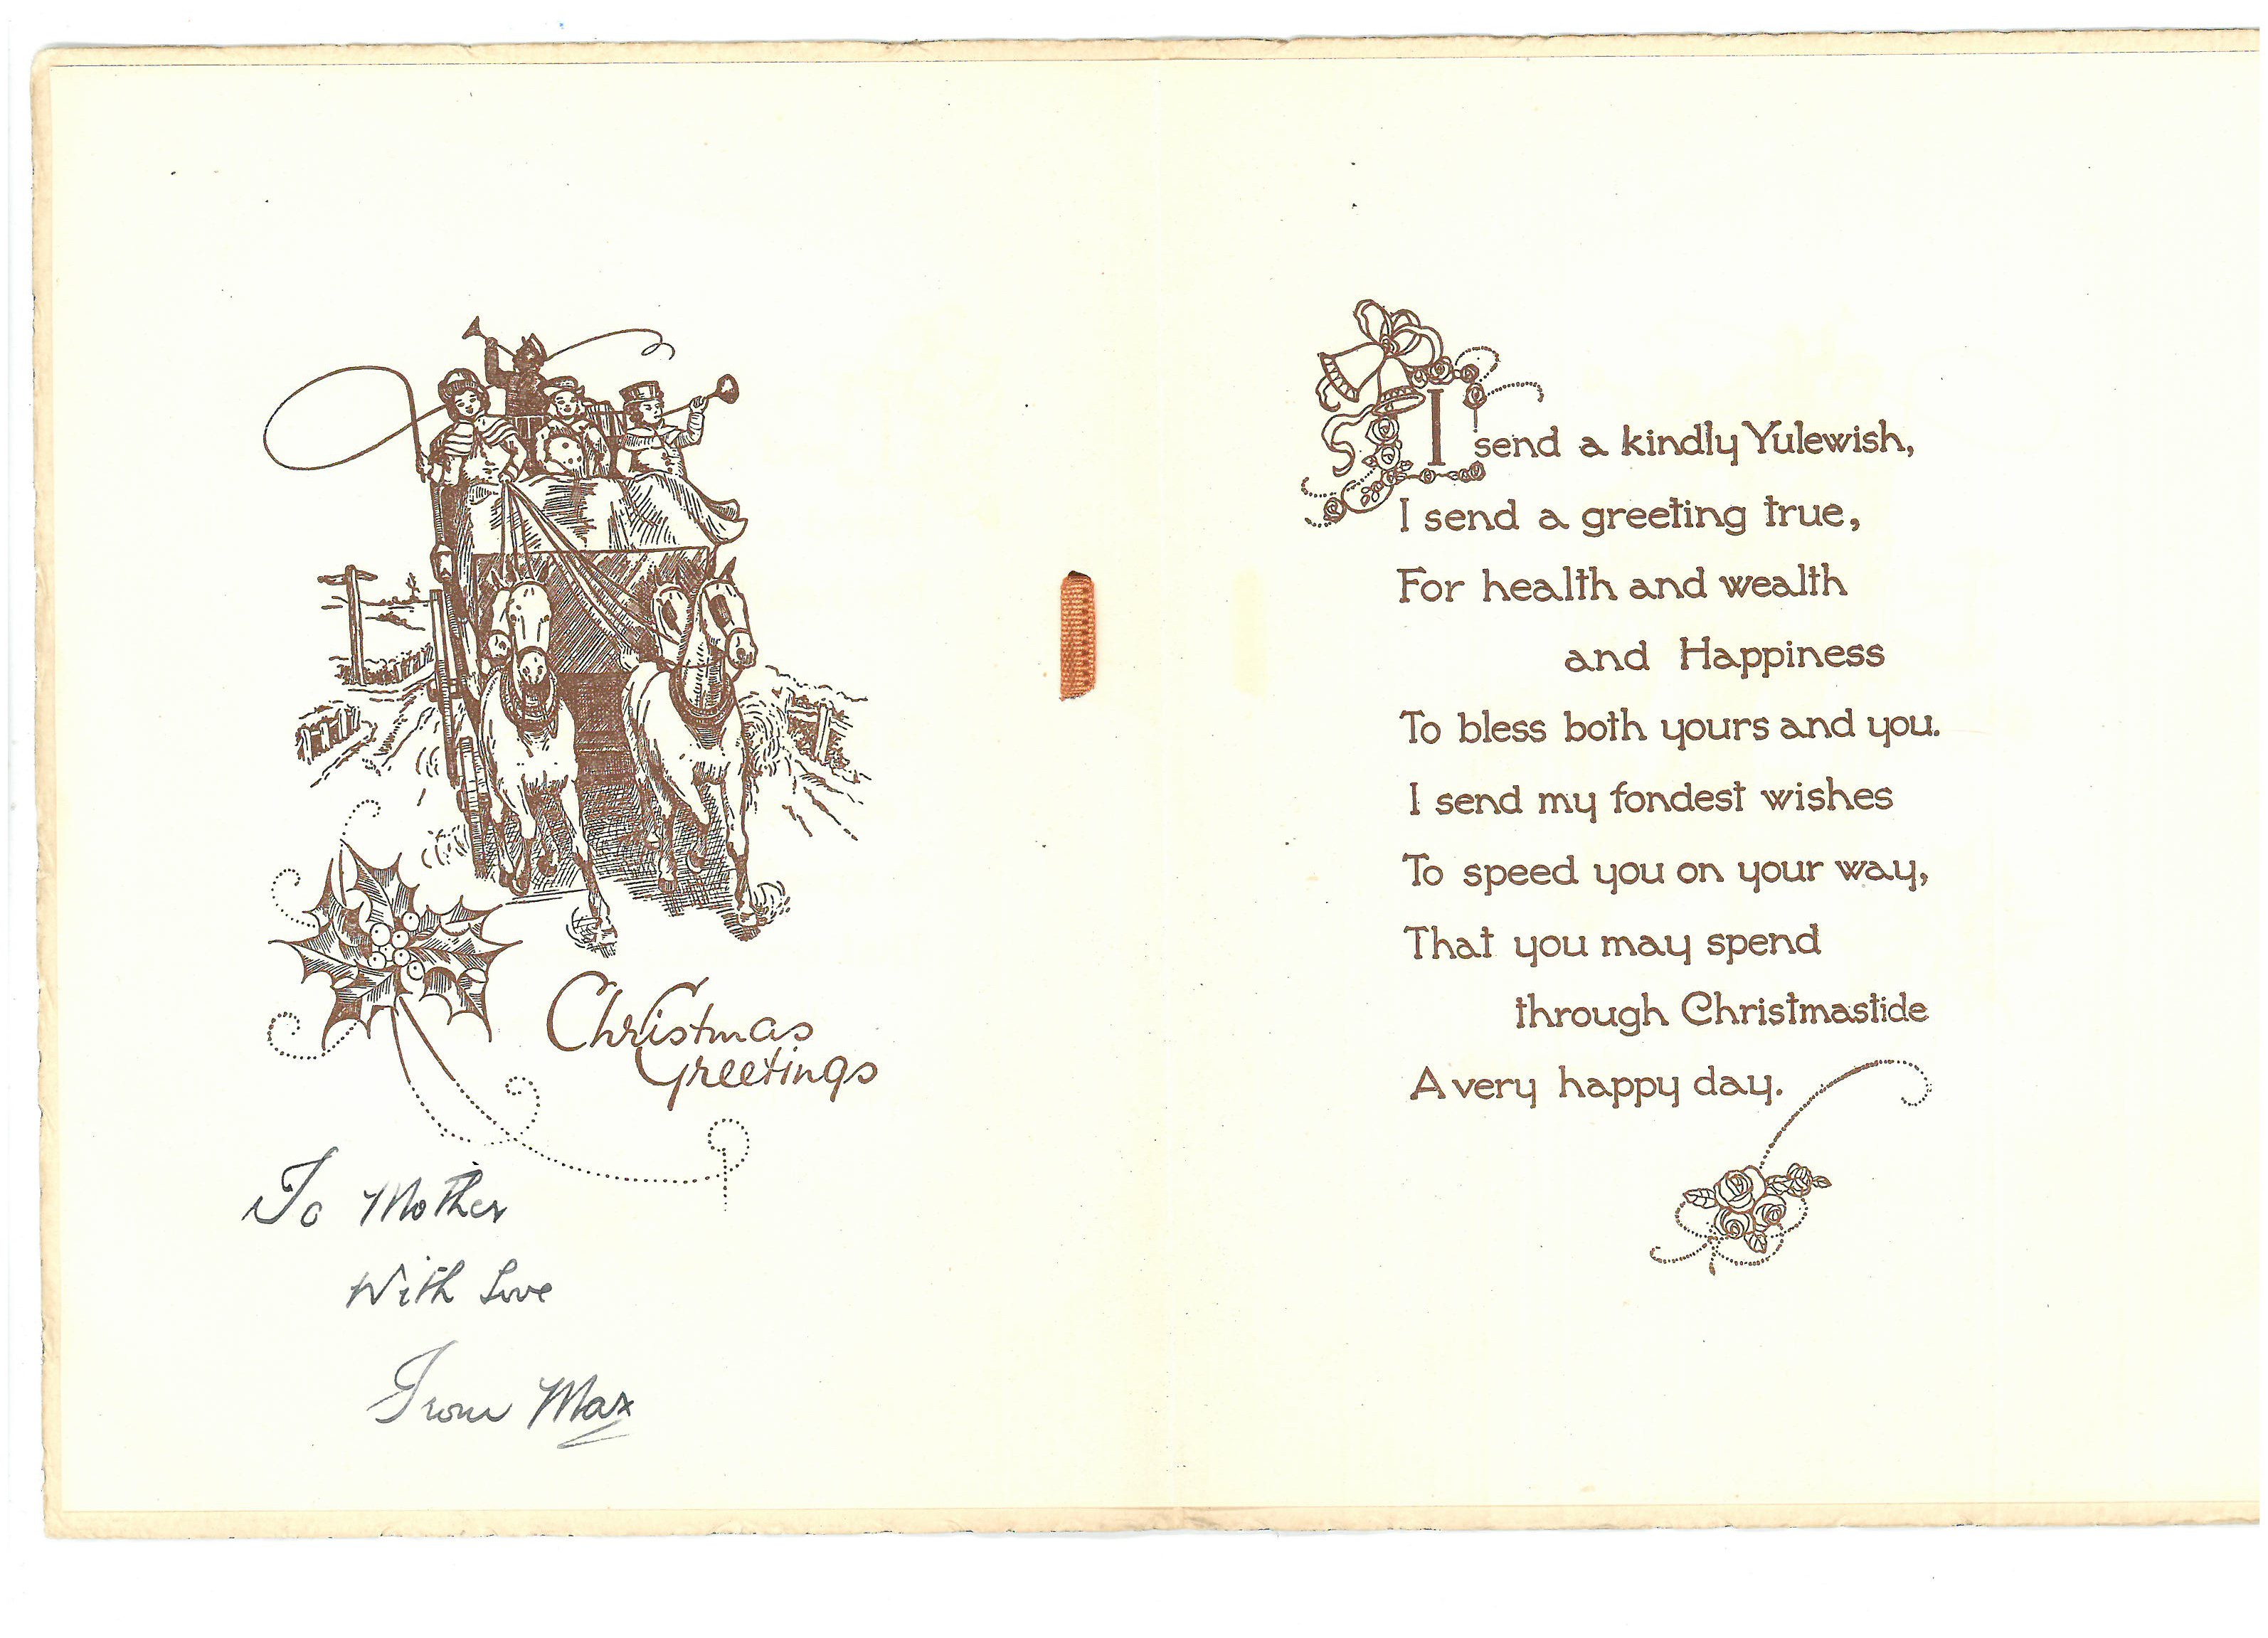 Christmas
Greetings
To Mother
With Love
From Max
I send a kindly Yulewish,
I send a greeting true,
For health and wealth
and Happiness
To bless both yours and you.
I send my fondest wishes
To speed you on your way,
That you may spend
through Christmastide
A very happy day.